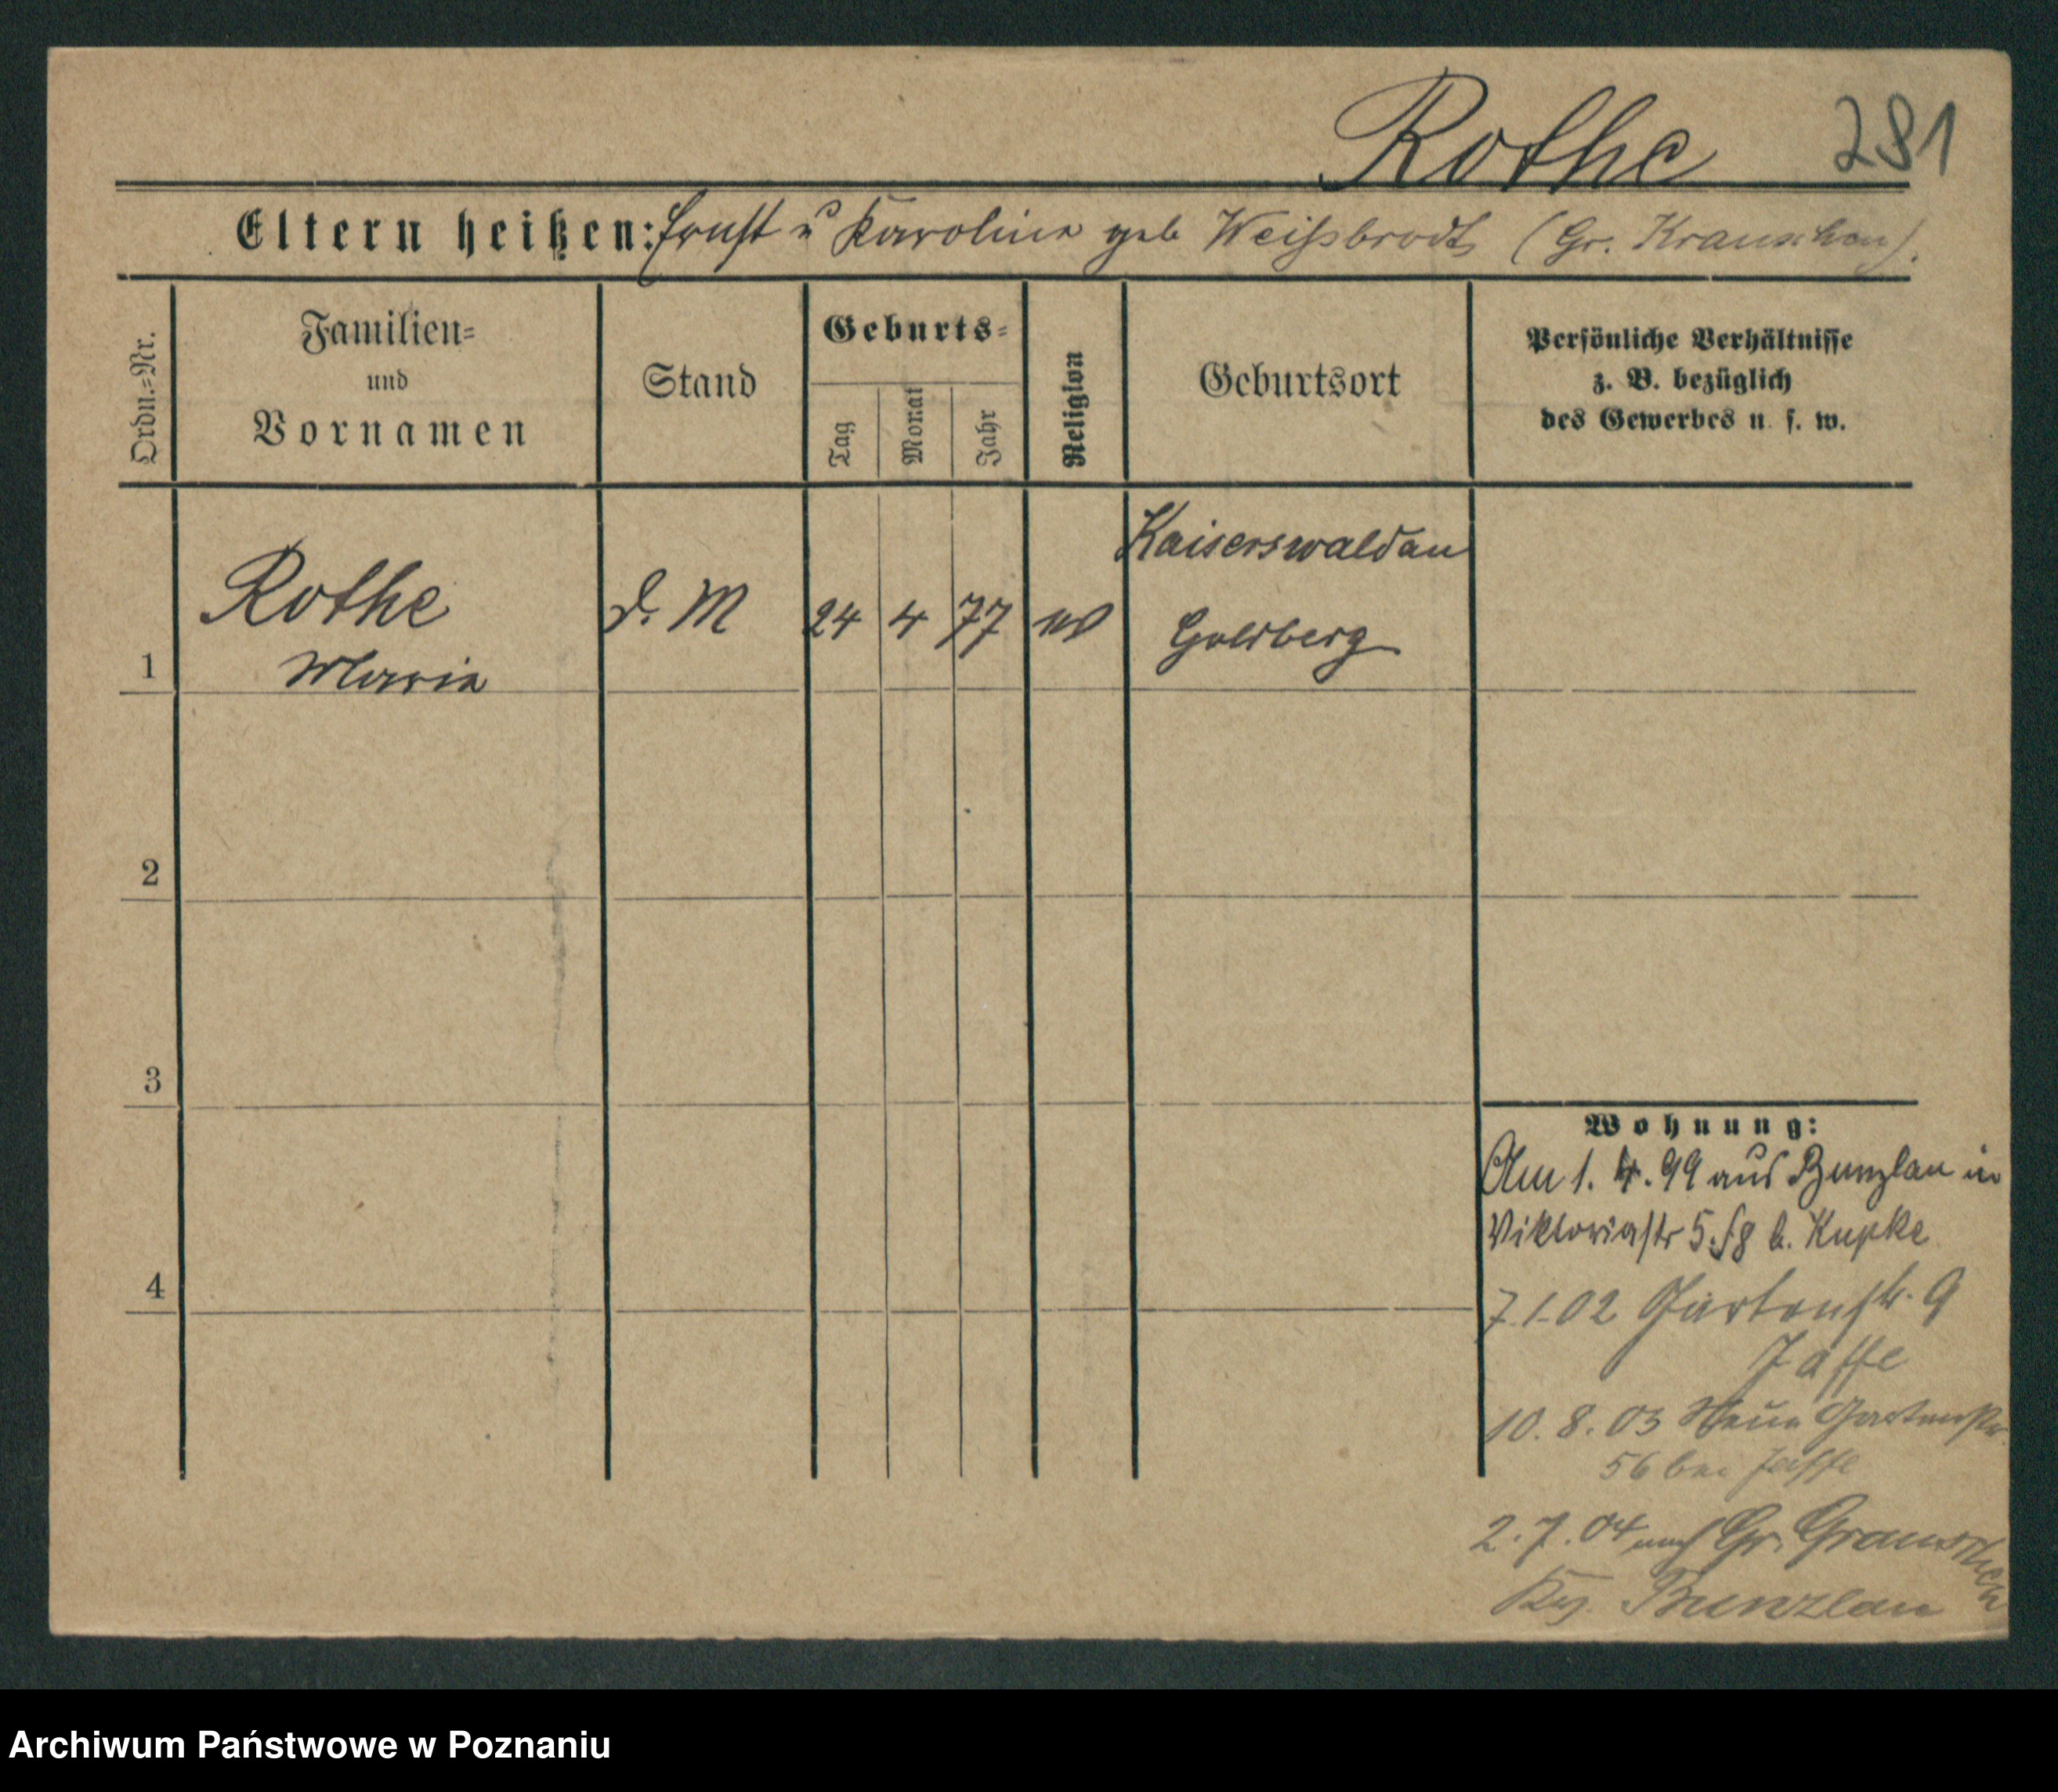 Rothe 281
Eltern heißen: Ernst u Karoline geb Weißbrodt (Gr. Krauschen).
Ordn.=Nr.
Familien=
und
Vornamen
Stand
Geburts=
Tag
Monat
Jahr
Religion
Geburtsort
Persönliche Verhältnisse
z. B. bezüglich
des Gewerbes u. s. w.
Kaiserswaldau
Rothe D. M 24 4 77 ev Goldberg
1 Maria
2
3
4
Wohnung:
Am 1. 4. 99 aus Bunzlau in
Viktoriastr 5. b. Kupke
7.1.02 Gartenstr. 9
Jaffe
10. 8. 03 Neue Gartenstr.
56 bei Jaffe
2. 7. 04 nach Gr. Grauschen
Bunzlau
Archiwum Państwowe w Poznaniu